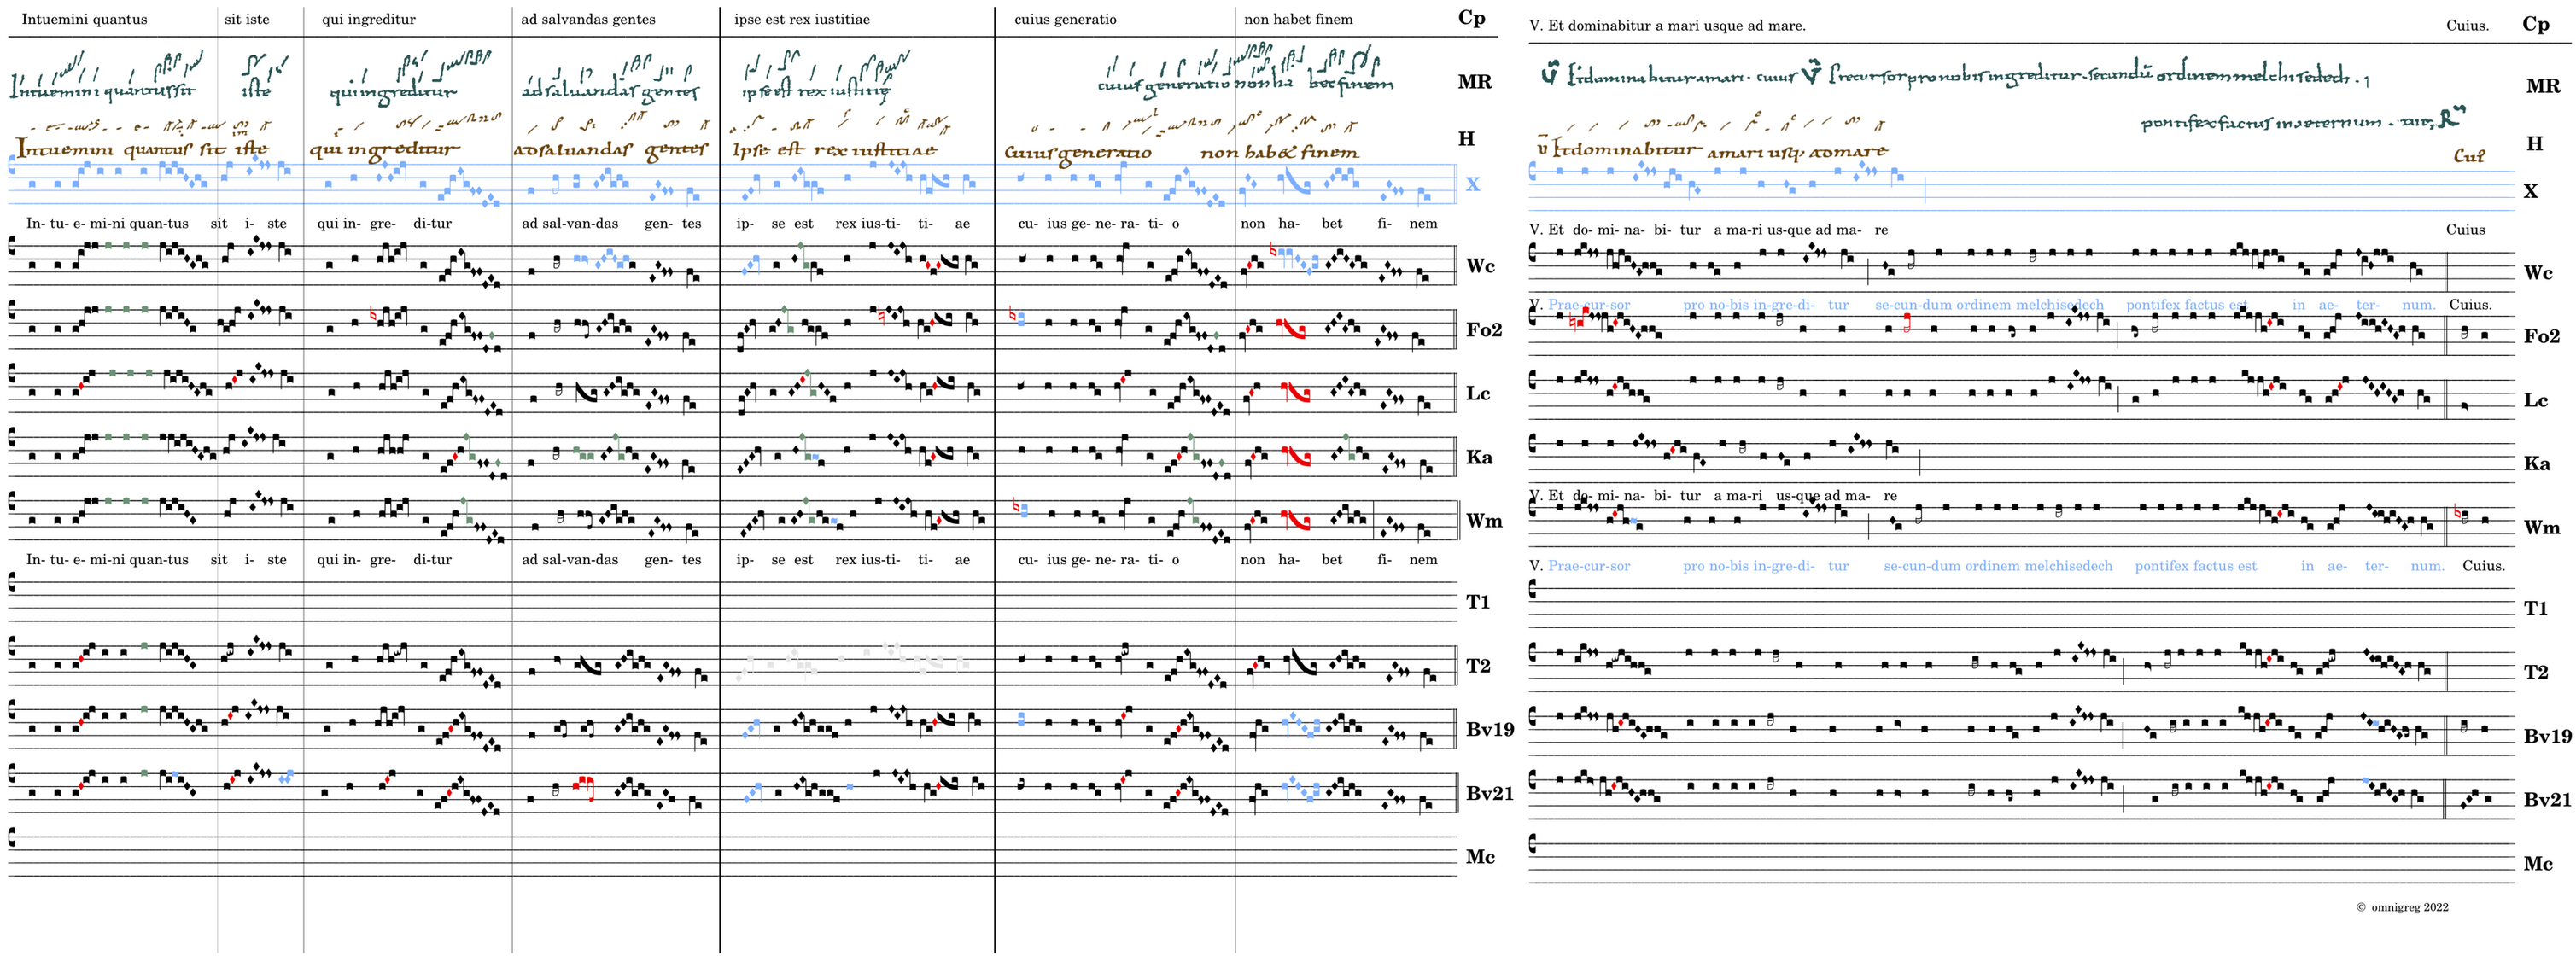 Intuemini quantus sit iste qui ingreditur ad salvandas gentes ipse est rex iustitiae cuius generatio non habet finem Cp
Intuemini quantus sit iste qui ingreditur ad saluandas gentes ipse est rex iustitię cuius generatio non ha bet finem MR
Intuemini quantus sit iste qui ingreditur ad saluandas gentes Ipse est rex iustitiae Cuius generatio non hab& finem H
X
In- tu- e- mi-ni quan-tus sit i- ste qui in- gre- di-tur ad sal-van-das gen- tes ip- se est rex ius-ti- ti- ae cu- ius ge- ne- ra- ti- o non ha- bet fi- nem
Wc
Fo2
Lc
Ka
Wm
In- tu- e- mi-ni quan-tus sit i- ste qui in- gre- di-tur ad sal-van-das gen- tes ip- se est rex ius-ti- ti- ae cu- ius ge- ne- ra- ti- o non ha- bet fi- nem
T1
T2
Bv19
Bv21
Mc
V. Et dominabitur a mari usque ad mare. Cuius. Cp
Et dominabitur amari. cuius V Precursor pro nobis ingreditur. secundū ordinem melchisedech. MR
pontifex factus in aeternum.
Et dominabitur amari usq; ad mare H
Cui
X
V. Et do- mi- na- bi- tur a ma-ri us-que ad ma- re Cuius
Wc
V. Prae-cur-sor pro no-bis in-gre-di- tur se-cun-dum ordinem melchisedech pontifex factus est in ae- ter- num. Cuius.
Fo2
Lc
Ka
V. Et do- mi- na- bi- tur a ma-ri us-que ad ma- re
Wm
V. Prae-cur-sor pro no-bis in-gre-di- tur se-cun-dum ordinem melchisedech pontifex factus est in ae- ter- num. Cuius.
T1
T2
Bv19
Bv21
Mc
© omnigreg 2022